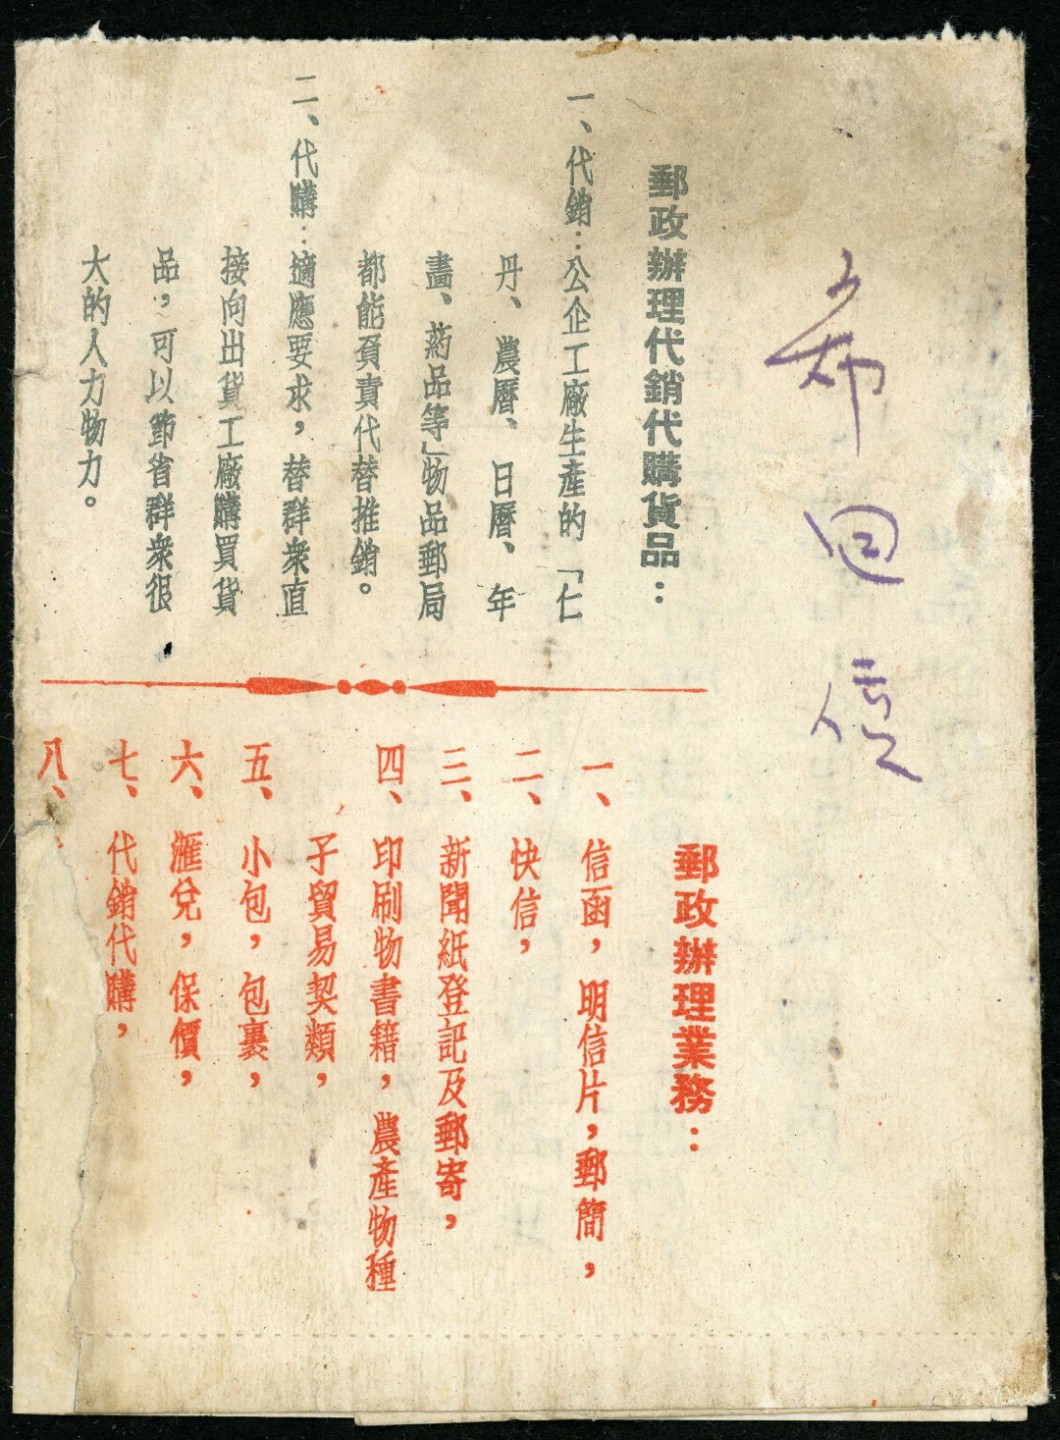 希回信
郵政辦理代銷代購貨品：
一、代銷：公企工廠生產的「仁
丹、農曆、日曆、年
畵、葯品等」物品郵局
都能負責代替推銷。
二、代購：適應要求，替群衆直
接向出貨工廠購買貨
品，可以節省群衆很
大的人力物力。
郵政辦理業務：
一、信函，明信片，郵簡，
二、快信，
三、新聞紙登記及郵寄，
四、印刷物書籍，農產物種
子貿易契類，
五、小包，包裹，
六、滙兌，保價，
七、代銷代購，
八、